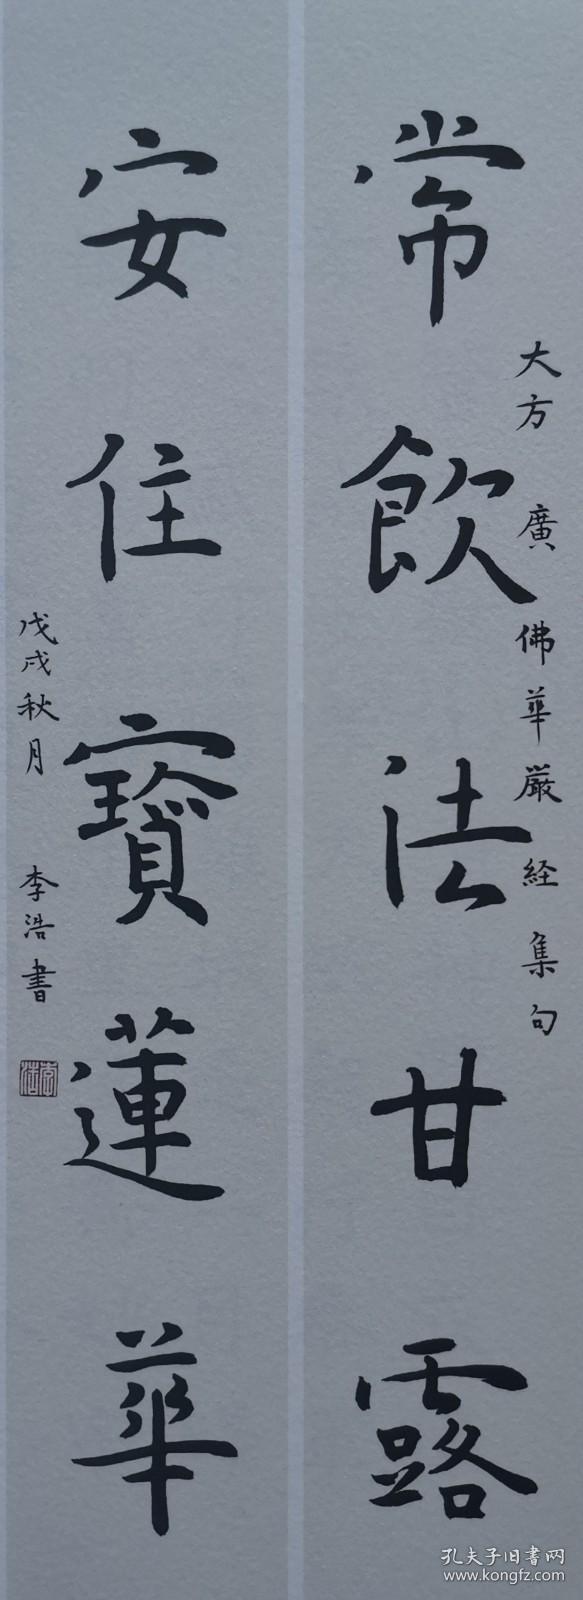 常飲法甘露
大方廣佛華厳経集句
安住寳蓮華
戊戌秋月 李浩書
李浩
孔夫子旧书网
www.kongfz.com